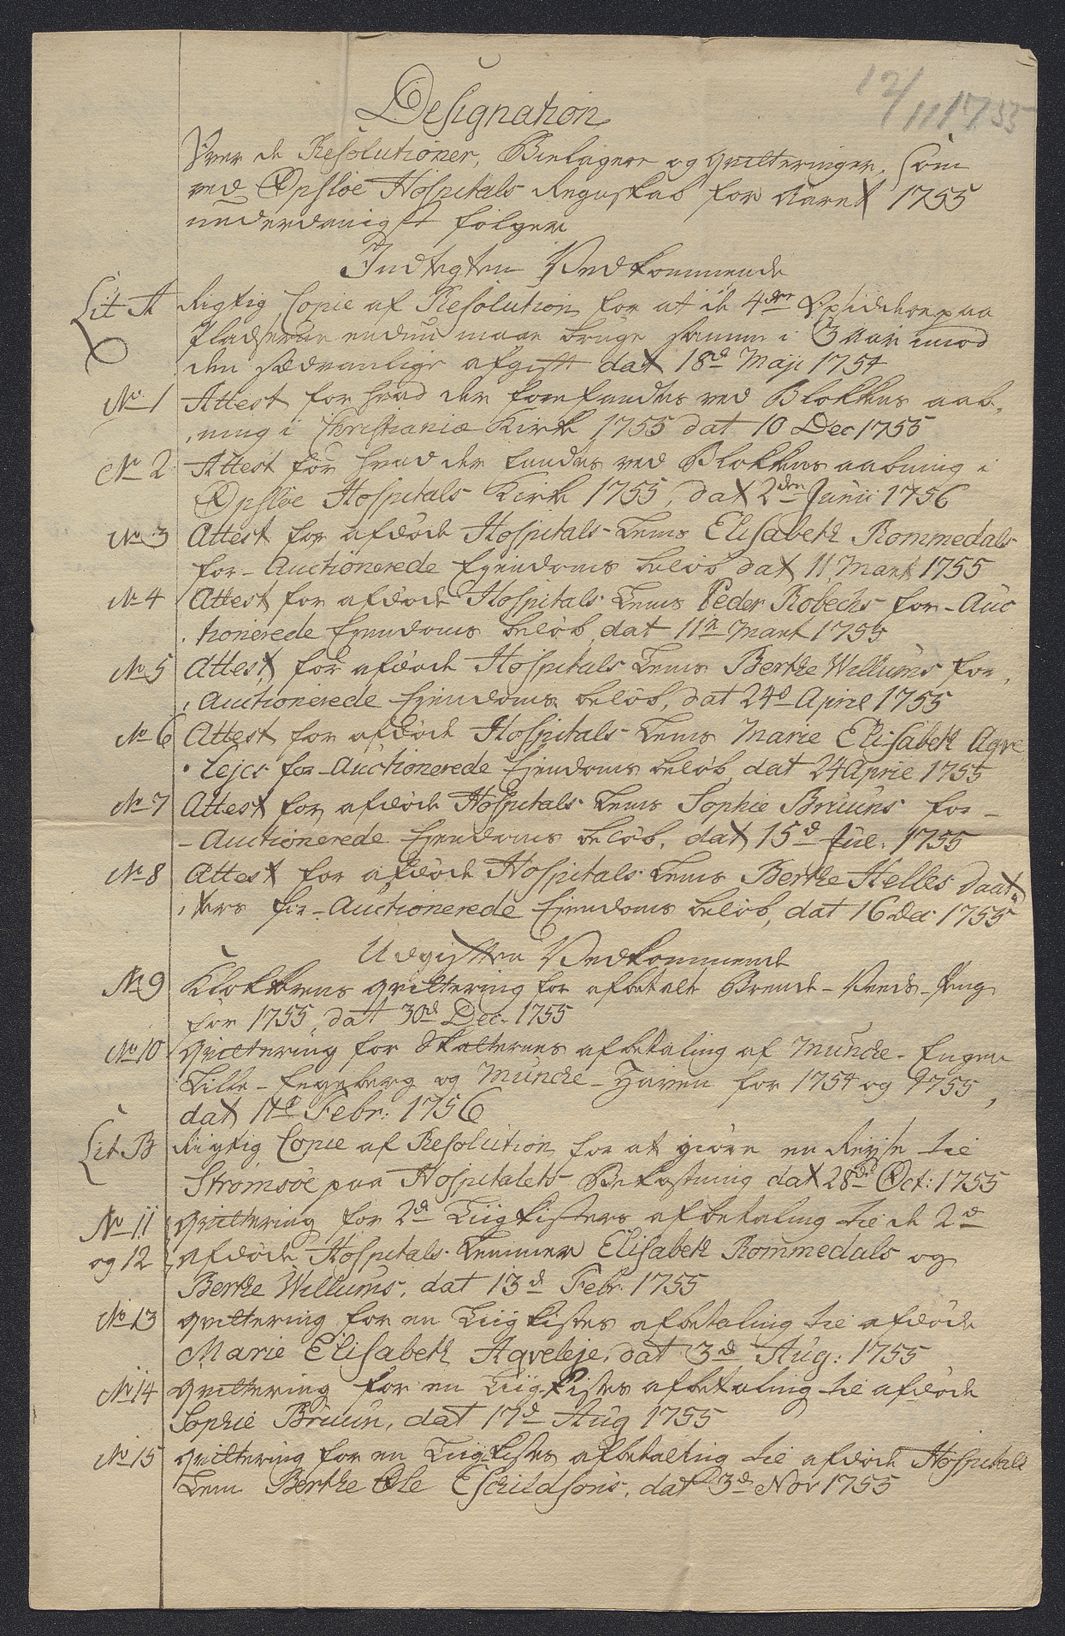 12/11 1755
Designation
Over de Resolutioner, Bielager og Qvitteringer, som
ved Opsloe Hospitals Regnskab for Aaret 1755
underdanigst følger
Indtegten Vedkommende
Lit A Rigtig Copie af Resolution for at de 4der Opsiddere paa
Pladserne endnu maae bruge samme i 3 aar imod
den sædvanlige afgift dat 18d Maji 1754
No 1 Attest for hvad der forefandtes ved Blokkens aab,
,ning i Christianiæ Kirke 1755 dat 10 Dec 1755
No 2 Attest for hvad der fandtes ved Blokkens aabning i
Opsloe Hospitals Kirke 1755, dat 2den Junii 1756
No 3 Attest for afdøde Hospitals-Lems Elisabeth Rommedals
for-Auctionerede Ejendoms beløb dat 11 Mart 1755
No 4 Attest for afdøde Hospitals Lems Peder Robechs for-Auc
,tionerede Ejendoms beløb, dat 11te Mart 1755
No 5 Attest for afdøde Hospitals Lems Berthe Willums for,
,Auctionerede Ejendoms beløb, dat 24d April 1755
No 6 Attest for afdøde Hospitals-Lems Marie Elisabeth Aqve
,lejes for-Auctionerede Ejendoms beløb, dat 24 Aprie 1755
No 7 Attest for afdøde Hospitals-Lems Sophie Bruuns for-
-Auctionerede Ejendoms beløb, dat 15d Jul: 1755
No 8 Attest for afdøde Hospitals-Lems Berthe Helles Daat,
,ters for-Auctionerede Ejendoms beløb, dat 16 Dec 1755
Udgiften Vedkommende
No 9 Klokkerens Qvittering for afbetalt Brende-Veeds-Peng
for 1755, dat 30d Dec. 1755
No 10 Qvittering for Skatternes afbetaling af Munche-Engen
Lille-Egeberg og Munche-Haven for 1754 og 1755,
dat 17d Febr: 1756
Lit B Rigtig Copie af Resolution for at giøre en Reyse til
Strømsøe paa Hospitalets Bekostning dat 28de Oct: 1755
No 11 Qvittering for 2d Liigkisters afbetaling til de 2d
og 12 afdøde Hospitals-Lemmer Elisabeth Rommedals og
Berthe Willums, dat 13d Febr. 1755
No 13 Qvittering for en Liigkistes afbetaling til afdøde
Marie Elisabeth Aqveleje, dat 3d Aug: 1755
No 14 Qvittering for en Liig-Kistes afbetaling til afdøde
Sophie Bruun, dat 17d Aug 1755
No 15 Qvittering for en Liigkistes afbetaling til afdøde Hospitals
Lem Berthe Ole Eschildsøns, dat 3d Nov 1755